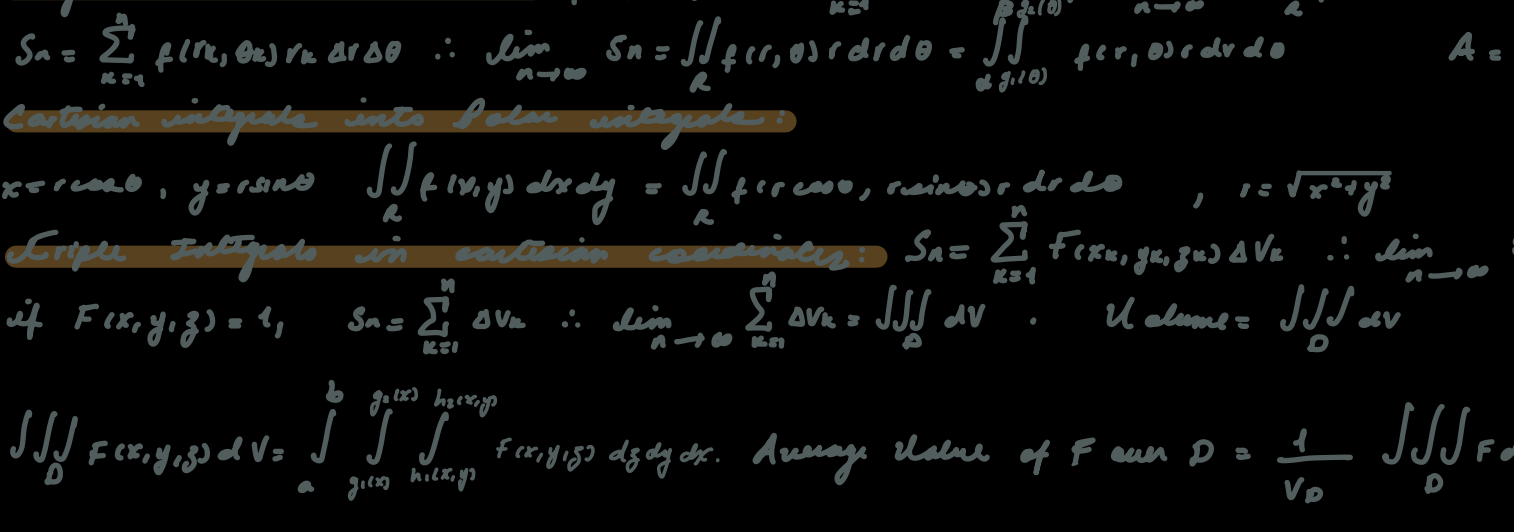 k=1 β g₂(θ) n→∞ R
Sn = Σ_{k=1}^{n} f(rk, θk) rk Δr Δθ ∴ lim_{n→∞} Sn = ∬_R f(r, θ) r dr dθ = ∫_α ∫_{g₁(θ)} f(r, θ) r dr dθ A =
Cartesian integrals into Polar integrals:
x = r cosθ, y = r sinθ ∬_R f(x,y) dx dy = ∬_R f(r cosθ, r sinθ) r dr dθ , r = √(x²+y²)
Triple Integrals in cartesian coordinates: Sn = Σ_{k=1}^{n} F(xk, yk, zk) ΔVk ∴ lim_{n→∞}
if F(x, y, z) = 1, Sn = Σ_{k=1}^{n} ΔVk ∴ lim_{n→∞} Σ_{k=1}^{n} ΔVk = ∭_D dV . Volume = ∭_D dV
∭_D F(x,y,z) dV = ∫_a^b ∫_{g₁(x)}^{g₂(x)} ∫_{h₁(x,y)}^{h₂(x,y)} F(x,y,z) dz dy dx. Average Value of F over D = 1/V_D ∭_D F d